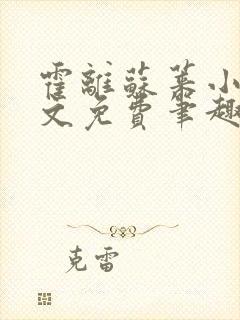 霍離蘇慕小
文免費筆趣
克雷